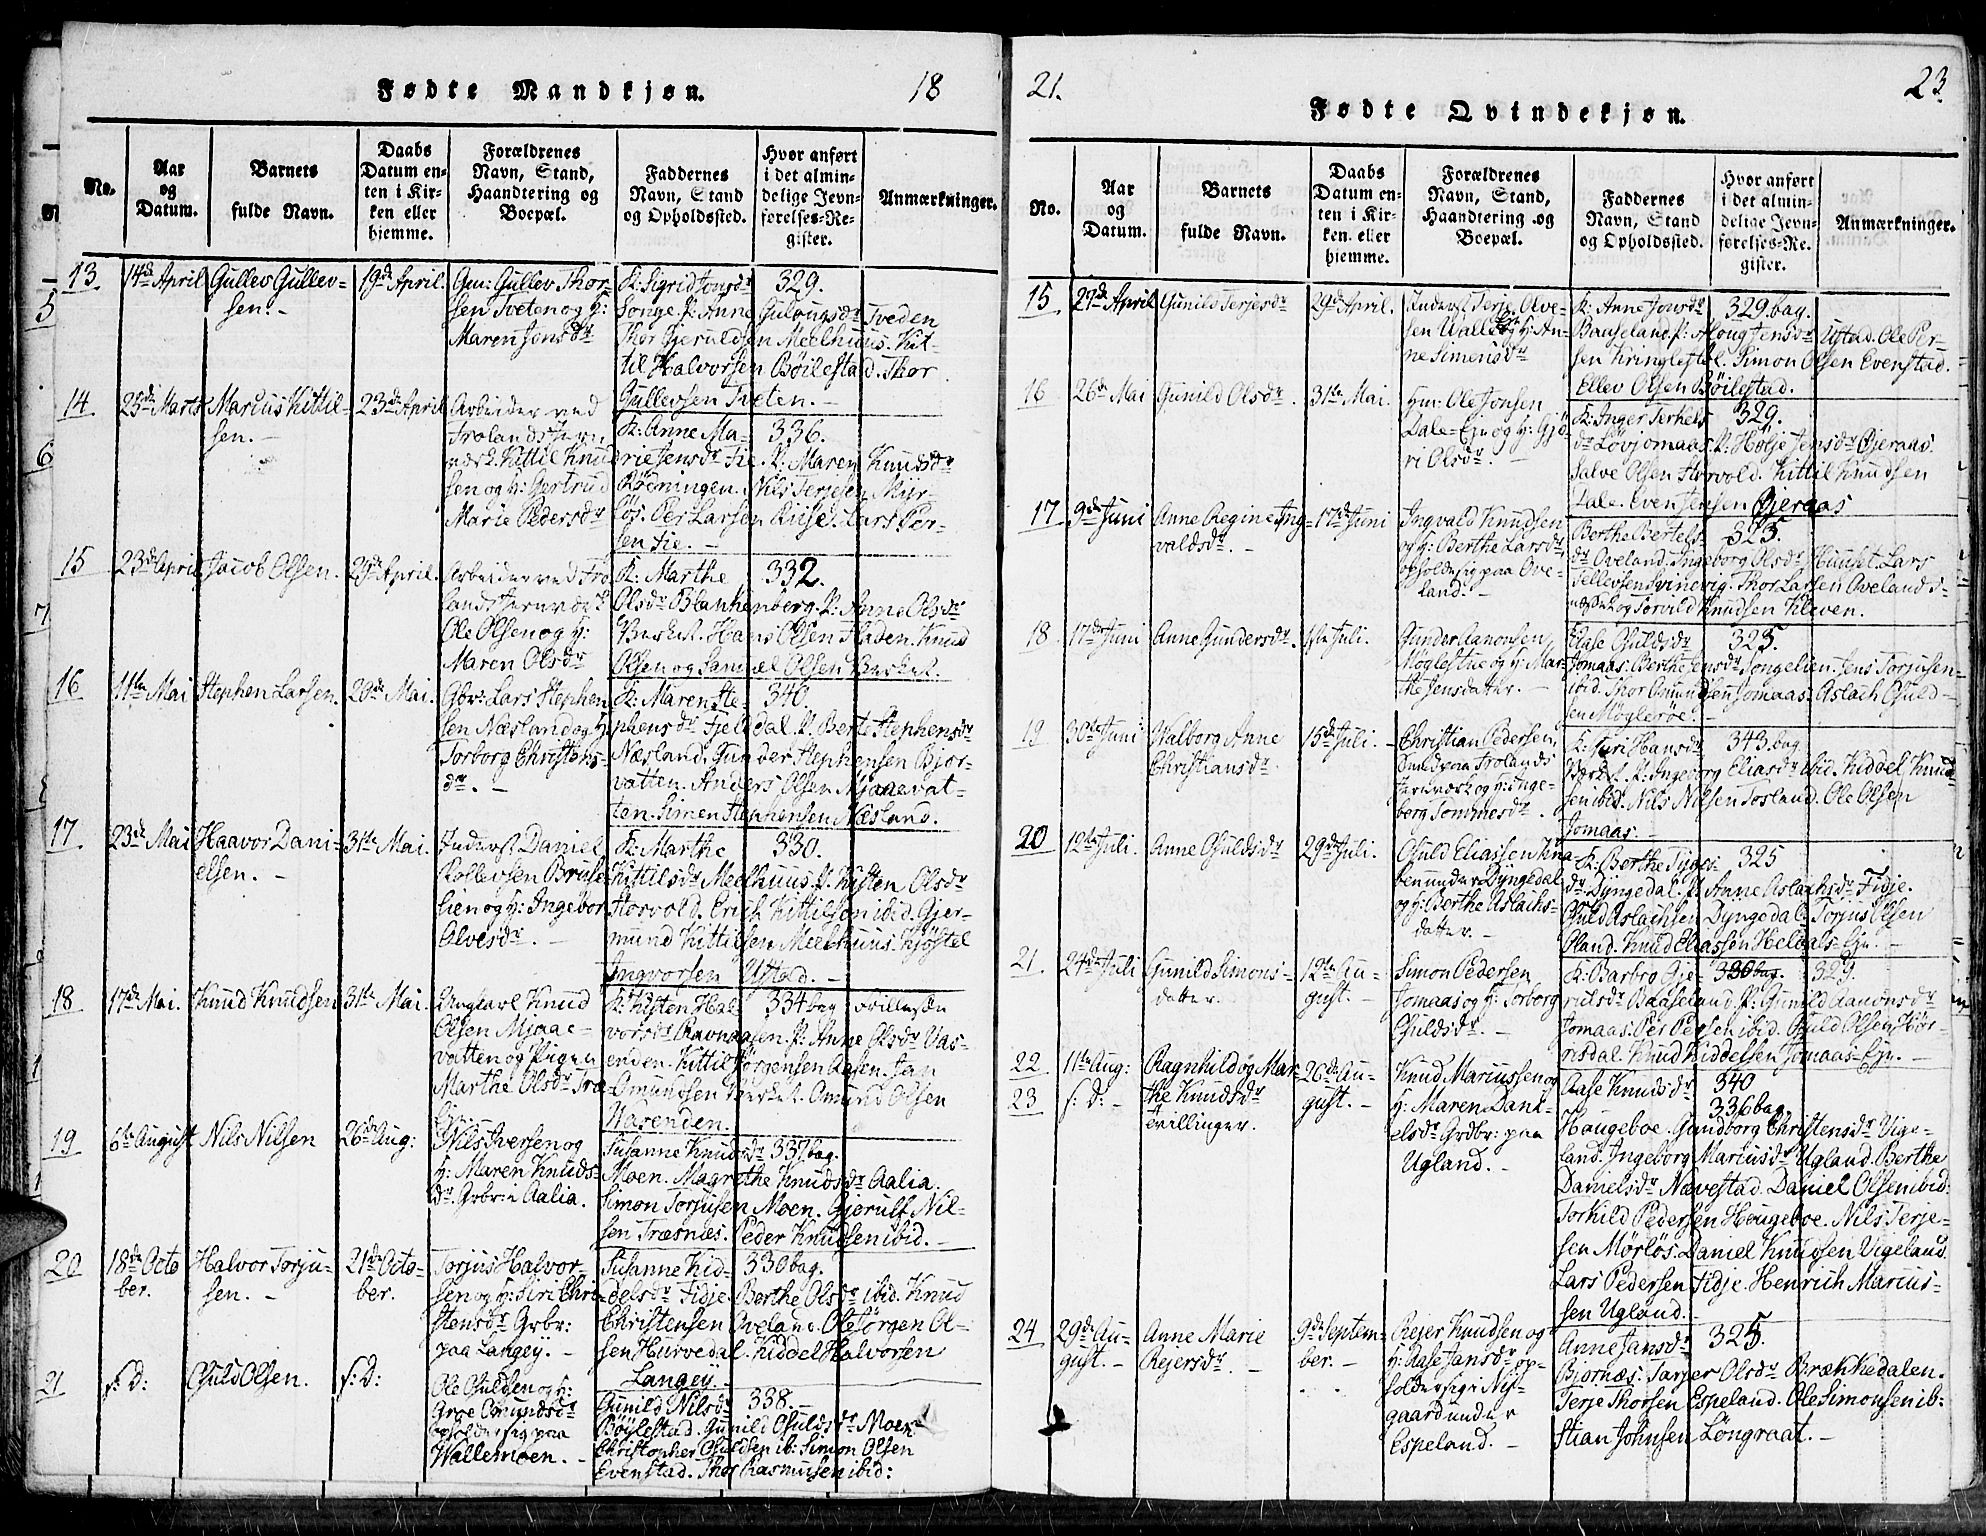 Fødte Mandkjøn. 18
No.
Aar og Datum.
Barnets fulde Navn.
Daabs Datum enten i Kirken eller hjemme.
Forældrenes Navn, Stand, Haandtering og Boepæl.
Faddernes Navn, Stand og Opholdssted.
Hvor anført i det almindelige Jevnførelses-Register.
Anmærkninger.
13
14de April
Gulles Gullev-
sen. -
19de April.
Gm: Gullev Thor-
sen Tveten og H:
Maren Jonsdr
F: Sigrid Jonsdr
Songe. P: Anne Gulougsdr Tveden
Thor Gjeruldsen Meelhuus. Kit-
til Halvorsen Böilestad. Thor
Gullevsen Tveten. -
329.
14
25de Marts
Marcus Kittil-
sen. -
23de April
Arbeider ved
Frolands Jern-
værk Kittil Knud
sen og H: Gertrud
Marie Pedersdr
F: Anne Ma-
rie Jensdr Fie. P: Maren Knudsdr
Rödningen. Nils Terjesen Myr-
lös. Per Larsen Riise. Lars Per-
sen Fie. -
336.
15
23de April
Jacob Olsen.
29de April.
Arbeider ved Fro
lands Jernværk
Ole Olsen og H:
Maren Olsdr
F: Marthe
Olsdr Blankenberg. P: Anne Olsdr
Værket. Hans Olsen Fladen. Knud
Olsen og Samuel Olsen Værket.
332.
16
11te Mai
Stephen Larsen.
20de Mai.
Gbr: Lars Stephen
sen Næsland og H:
Torborg Christens-
dr. -
F: Maren Ste-
phensdr Fjeldal. P. Berte Stephensdr
Næsland. Gunder Stephensen Bjor-
vatten. Anders Olsen Mjaavat-
ten. Simen Stephensen Næsland.
340.
17
23de Mai
Haavor Dani-
elsen. -
31te Mai.
Inderst Daniel
Rollevsen Bruse-
lien og H: Ingebor
Olvesdr. -
F: Marthe
Kittilsdr Meelhuus. P. Kisten Olsdr
Horvold. Erich Kittilsen ibid. Gjer-
mund Kittilsen Meelhuus. Kjöstel
Ingvorsen Ustad. -
330.
18
17de Mai.
Knud Knudsen
31te Mai.
Ungkarl Knud
Olsen Mjaae-
vatten og Pigen
Marthe Olsdr Fro
F: Kisten Hal
vorsdr Ravnaasen. P: Anne Olsdr Vas-
enden. Kittil Jörgensen Aasen. Jan
Omundsen Værket. Omund Olsen
Wasenden.
334 bag
19
6te August
Nils Nilsen
26de Aug:
Nils Iversen og
H: Maren Knuds-
dr. Grbr: Aalia.
Susanne Knudsdr
Moen. Magrethe Knudsdr Aalia.
Simon Torjusen Moen. Gjerulf Nil-
sen Træsnes. Peder Knudsen ibid. -
337 bag.
20
18de Octo
ber.
Halvor Torju-
sen. -
21de Octo-
ber.
Torjus Halvor-
sen og H: Siri Chri-
stensdr Grbr:
paa Langey. -
Susanne Kid-
delsdr Fidje. Berthe Olsdr ibid. Knud
Christensen Oveland. Ole Sörgen Ol-
sen Hurvedal. Kiddel Halvorsen
Langey. -
330 bag.
21
s: D:
Osuld Olsen.
s: D:
Ole Osuldsen og H:
Groe Omundsdr
opholder sig paa
Wallemoen. -
Gunild Nilsdr
Böylestad. Gunild Osuldsdr Moen
Christopher Osuldsen ib: Simon Olsen
Evenstad. Thor Rasmusen ibid:
338. -
21. Fødte Qvindekjøn. 23.
No.
Aar og Datum.
Barnets fulde Navn.
Daabs Datum enten i Kirken eller hjemme.
Forældrenes Navn, Stand, Haandtering og Boepæl.
Faddernes Navn, Stand og Opholdssted.
Hvor anført i det almindelige Jevnførelses-Register.
Anmærkninger.
15
27de April
Gunild Terjesdr
29de April.
Inderst Terje Olve-
sen Walle og H: An-
ne Simensdr
F: Anne Jonsdr
Bauseland. P: Aloug Jensdr Ustad. Ole Per-
sen Kringlestel. Simon Olsen Evenstad.
Ellev Olsen Böilestad.
329. bag.
16
26de Mai
Gunild Olsdr.
31te Mai.
Hm: Ole Jonsen
Dale-Eje og H: Gjö-
ri Olsdr. -
F: Inger Terkels
dr Lövjomaas. P: Holje Jensdr Gjeraas.
Salve Olsen Horvold. Kittil Knudsen
Dale. Even Jensen Gjeraas
329.
17
9de Juni
Anne Regine Ing-
valdsdr. -
17de Juni
Ingvald Knudsen
og H: Berthe Larsdr,
opholder sig paa Ove-
land. -
Berthe Bertels
dr Oveland. Ingeborg Olsdr Huuset. Lars
Tellevsen Svinevig. Thor Larsen Oveland s-
næs og Torvild Knudsen Kleven.
325.
18
17de Juni
Anne Gundersdr.
1ste Juli.
Gunder Aanonsen
Möglestue og H: Mar-
the Jensdatter. -
Aase Osuldsdr
Jomaas. Berthe Jensdr Songelien. Jens Torjusen
ibid. Thor Omundsen Jomaas. Aslach Osuld-
sen Möglerøe. -
325.
19
30te Juni
Walborg Anne
Christiansdr.
15de Juli. -
Christian Pedersen,
Smed paa Frolands
Jernværk og H: Inge-
borg Tommesdr.
F: Turi Hansdr
Værket. P: Ingeborg Eliasdr ibid. Kiddel Knud-
sen ibid. Nils Nilsen Fosland. Ole Olsen
Jomaas. -
343. bag.
20
12te Juli.
Anne Osuldsdr
29de Juli.
Osuld Eliassen Kna
ben under Dyngedal
og H: Berthe Aslachs-
datter. -
F. Berthe Tyges-
dr Dyngedal. P. Anne Aslachsdr Fidje.
Osuld Aslachsen Dyngedal. Torjus Olsen
Oland. Knud Eliassen Heldals-Eje. -
325
21
24de Juli
Gunild Simons-
datter.
12te Au-
gust. -
Simon Pedersen
Jomaas og H: Torborg
Osuldsdr. -
F: Barbro Gje-
rulsdr Baaseland. P: Gunild Aanonsdr
Jomaas. Per Persen ibid. Osuld Olsen Hör-
risdal. Knud Kiddelsen Jomaas-Eje. -
330 bag.
329.
22
23
11te Aug:
s: D: -
Ragnhild og Mar-
the Knudsdr
tvillinger.
26de Au-
gust. -
Knud Mariussen og
H: Maren Dani-
elsdr Grdbr: paa
Ugland. -
Aase Knudsdr
Hougeboe. Gundborg Christensdr Vige-
land. Ingeborg Mariusdr Ugland. Berthe
Danielsdr Nævestad. Daniel Olsen ibid:
Torkild Pedersen Hougeboe. Nils Terje-
sen Mörlös. Daniel Knudsen Vigeland.
Lars Pedersen Fidje. Henrich Marcus-
sen Ugland. -
340
336 bag.
24
29de Au-
gust. -
Anne Marie
Rejersdr. -
9de Septem-
ber. -
Rejer Knudsen og
H: Aase Jansdr op-
holder sig i Nis-
gaard under
Espeland. -
Anne Jansdr
Bjornæs. Torjer Olsdr Brækkedalen.
Terje Thorsen Espeland. Ole Simonsen ib:
Stian Johnsen Löngraat. -
325.